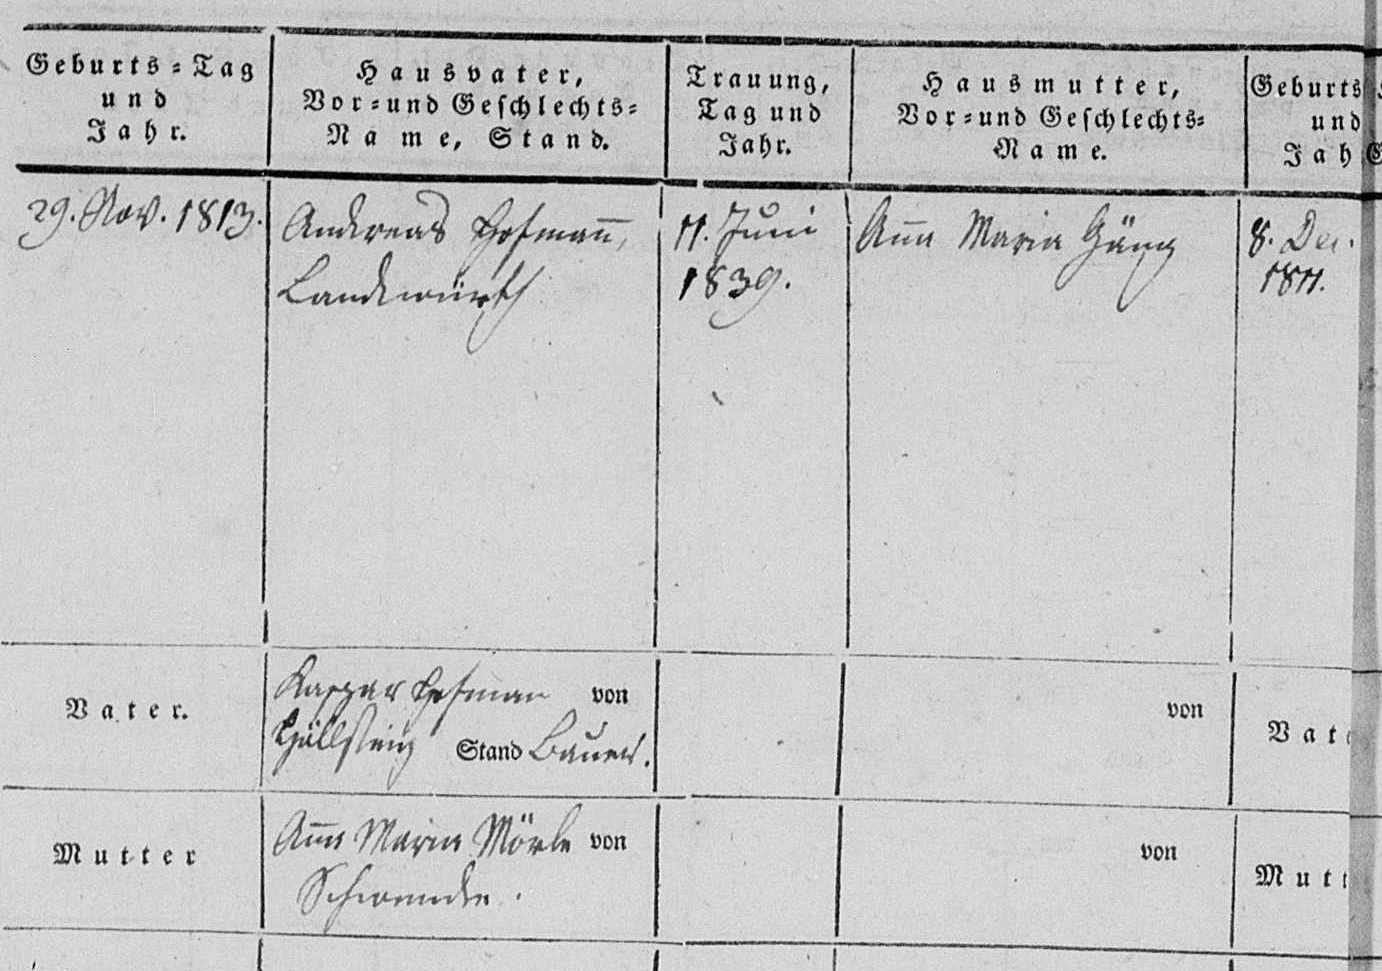 Geburts=Tag
und
Jahr.
Hausvater,
Vor=und Geschlechts=
Name, Stand.
Trauung,
Tag und
Jahr.
Hausmutter,
Vor=und Geschlechts=
Name.
Geburts
und
Jah
29. Nov. 1813.
Andreas Hofmann,
Landwürth
11. Juni
1839.
Anna Maria Gäng
8. Dec.
1811.
Vater.
Kaspar Hofman von
Höllsteig Stand Bauer.
von
Vat
Mutter
Anna Maria Mörle von
Schwende.
von
Mutt